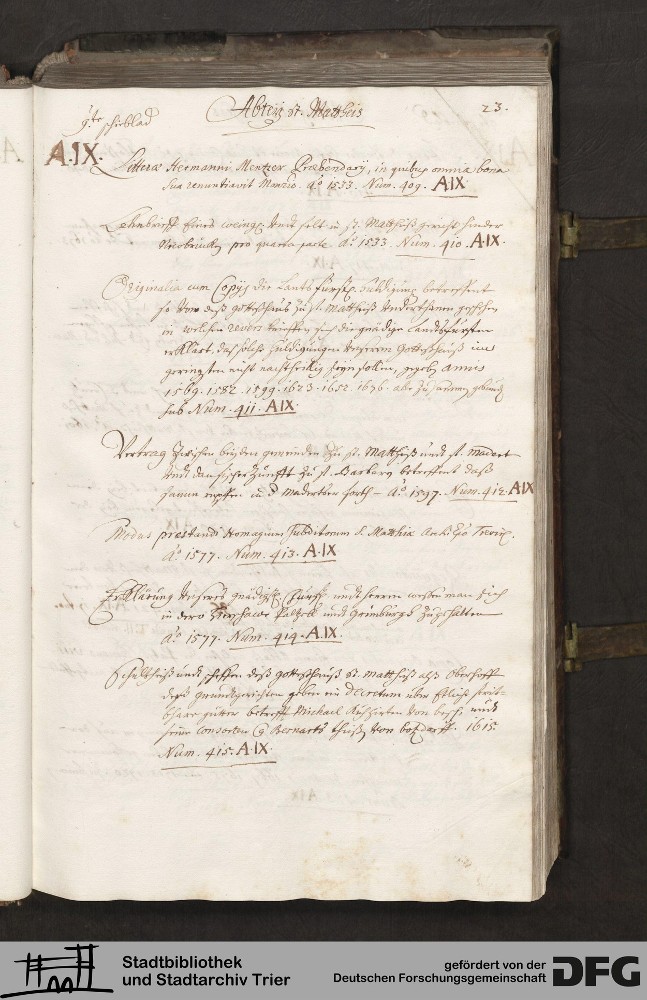 Abtey st. Matheis
23.
9te schieblad
A.IX.
Litterae Hermanni Mentzer Praebendarij, in quibus omnia bona
sua renuntiavit Monrio. aō 1533. Num. 409. A.IX
Lehnbrieff Eines undt felt in st. Mattheiß gericht hinder
pro quarta parte Aō 1533. Num. 410. A.IX.
Originalia cum Copijs die Landtsfürstl. huldigung betreffent
so von deß gotteßhauß zu st. Mattheiß Underthanen geschehen
in welchen revers brieffen sich die gnädige landtsfürsten
erklärt, daß solche huldigungen Unserem Gotteßhauß im
geringsten nicht nachtheilig seyn sollen, annis
1569. 1582. 1599. 1623. 1652. 1676. aber zusammen gebunden
sub Num. 411. A.IX.
Vertrag Zwischen beyden gemeinden zu st. Mattheiß undt st. Medart
undt zunfft zu st. Barbara betreffent daß
Aō 1597. Num. 412. A.IX
Modus prestandi Homagium Subditorum S. Matthiae Archi Epō Trevir.
Aō 1577. Num. 413. A.IX
Erklärung Unseres gnädigst. Chürf. undt herren man sich
in dero Paltzell undt Grimburgh zu halten
Aō 1577. Num. 414. A.IX.
Schultheiß und scheffen deß gotteßhauß st. Mattheiß alß Oberhoff
deß grundtgerichten geben ein Decretum über Etliche
güter betreff Michael von undt
seine Consorten Bernarts von 1615.
Num. 415. A.IX.
Stadtbibliothek
und Stadtarchiv Trier
gefördert von der
Deutschen Forschungsgemeinschaft
DFG